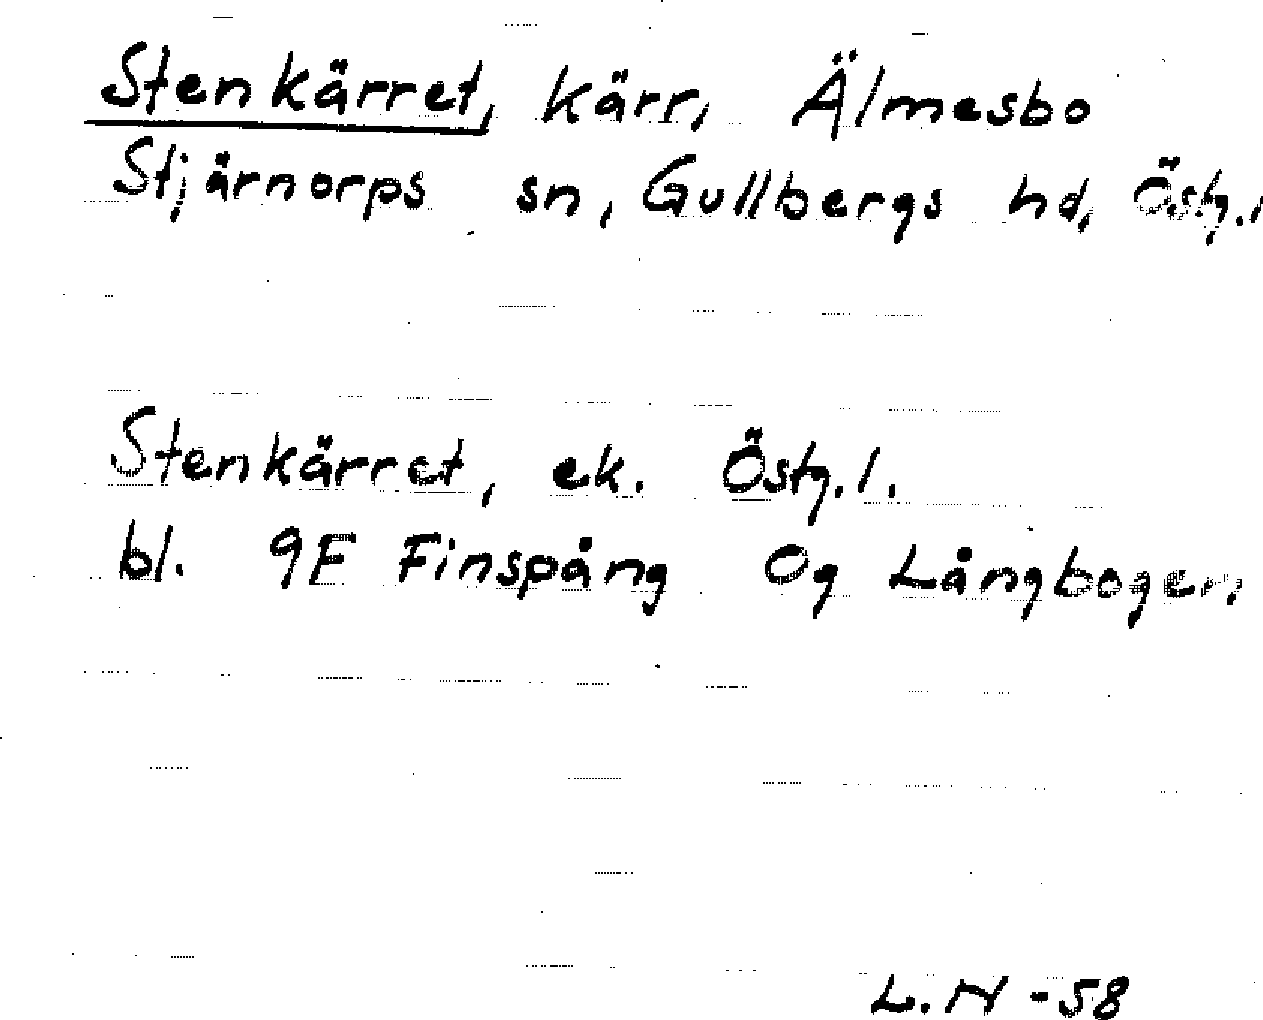 Stenkärret, kärr, Älmesbo
Stjärnorps sn, Gullbergs hd, Östg.l
Stenkärret, ek. Östg.l.
bl. 9F Finspång Og Långbogen
L.N -58